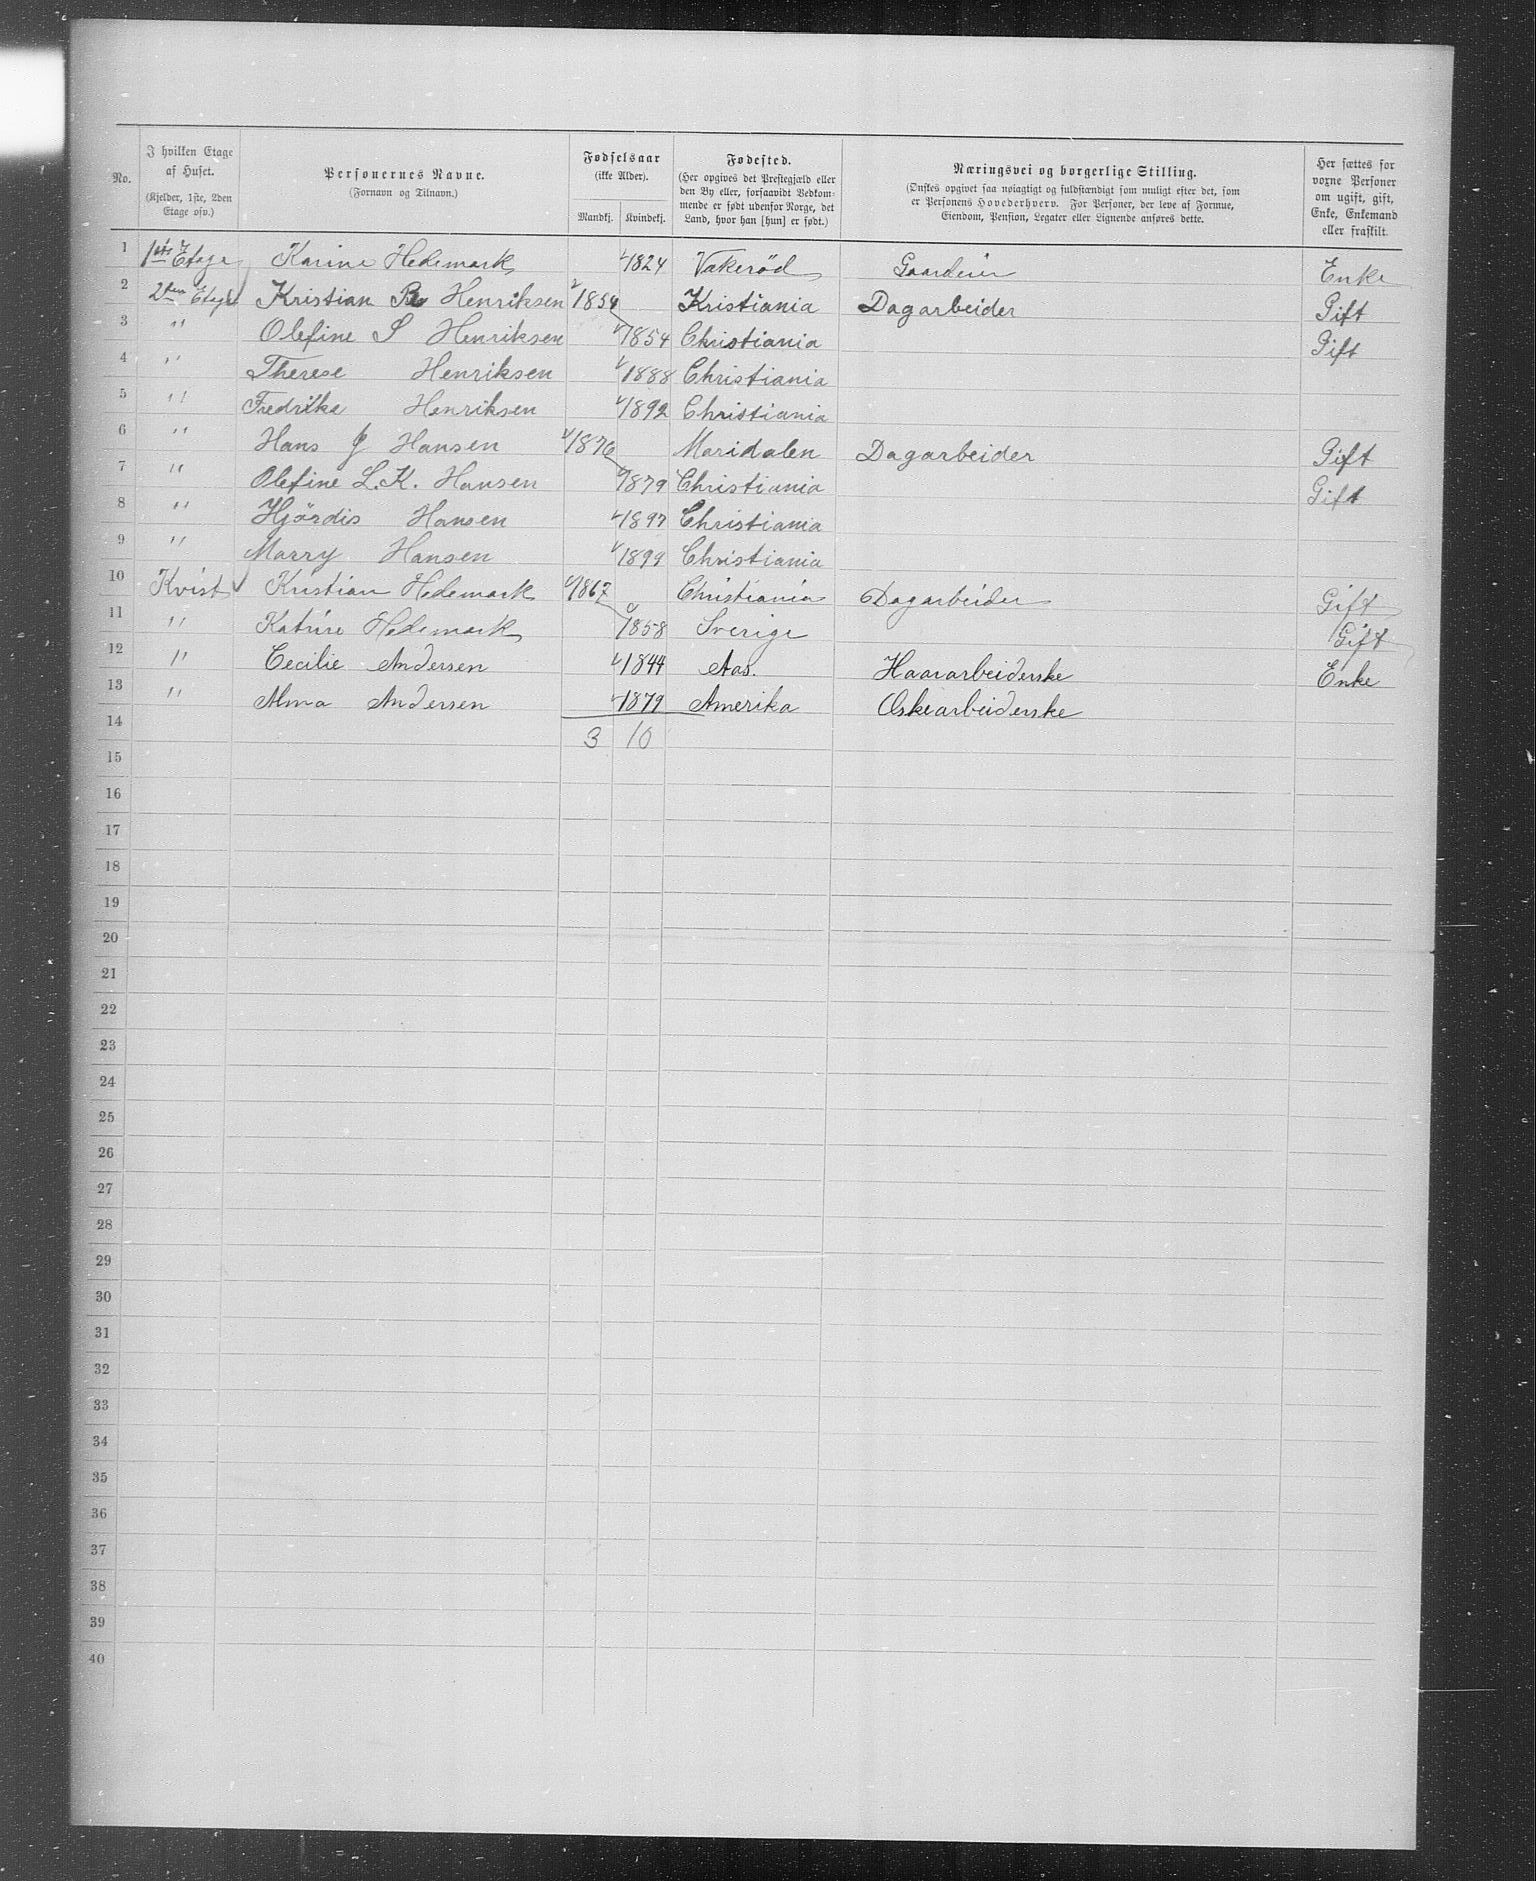 No. | I hvilken Etage af Huset. (Kjelder, 1ste, 2den Etage osv.) | Personernes Navne. (Fornavn og Tilnavn.) | Fødselsaar (ikke Alder). Mandkj. | Kvindekj. | Fødested. (Her opgives det Prestegjæld eller den By eller, forsaavidt Vedkommende er født udenfor Norge, det Land, hvor han [hun] er født.) | Næringsvei og borgerlige Stilling. (Ønskes opgivet saa nøiagtigt og fuldstændigt som muligt efter det, som er Personens Hovederhverv. For Personer, der leve af Formue, Eiendom, Pension, Legater eller Lignende anføres dette. | Her sættes for voxne Personer om ugift, gift, Enke, Enkemand eller fraskilt.
1 1ste Etage Karine Hedemark 1824 Vakerød Gaardeier Enke
2 2den Etage Kristian R Henriksen 1854 Kristiania Dagarbeider Gift
3 " Olefine S Henriksen 1854 Christiania Gift
4 " Therese Henriksen 1888 Christiania
5 " Fredrika Henriksen 1892 Christiania
6 " Hans J Hansen 1876 Maridalen Dagarbeider Gift
7 " Olefine L. K. Hansen 1879 Christiania Gift
8 " Hjørdis Hansen 1897 Christiania
9 " Marry Hansen 1899 Christiania
10 Kvist Kristian Hedemark 1867 Christiania Dagarbeider Gift
11 " Katrine Hedemark 1858 Sverige Gift
12 " Cecilie Andersen 1844 Aas. Haararbeiderske Enke
13 " Alma Andersen 1879 Amerika Æskearbeiderske
14 3 10
15
16
17
18
19
20
21
22
23
24
25
26
27
28
29
30
31
32
33
34
35
36
37
38
39
40